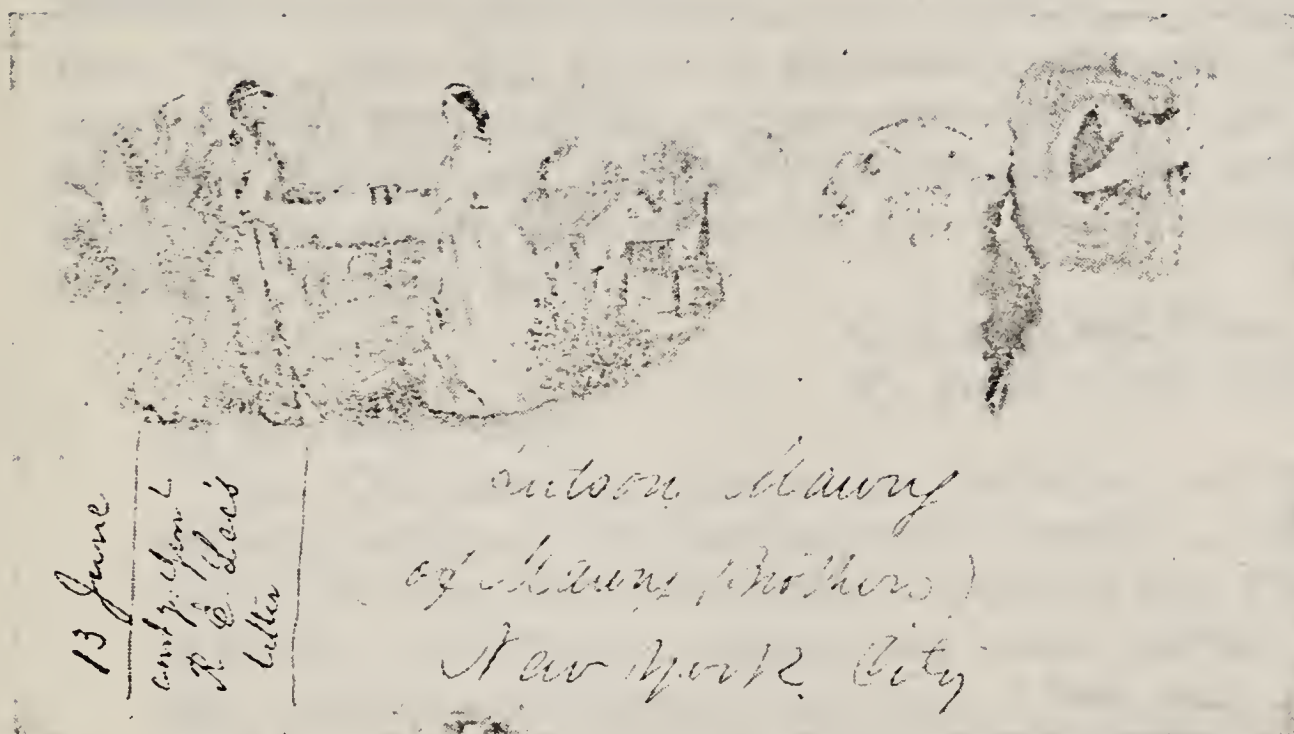 13 June
R E Lee's
letter
Rutson Maury
of Maury Brothers)
New York City